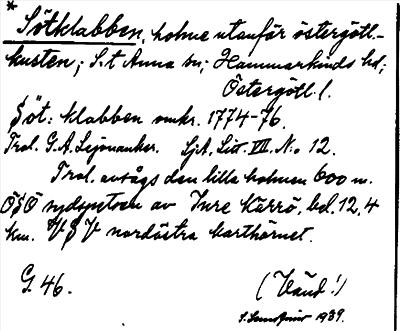 * Sötklabben, holme utanför östergötl.-
kusten; S:t Anna sn; Hammarkinds hd;
Östergötl. l.
Söt: klabben omkr. 1774-76.
Trol. G. A. Lejonanker. Sjk. Litt VII. No 12.
Trol. avsågs den lilla holmen 600 m.
ÖSÖ sydspetsen av Inre Kärrö, bel. 12,4
km. VSV nordöstra karthörnet.
G. 46.
(Vänd!)
1939.